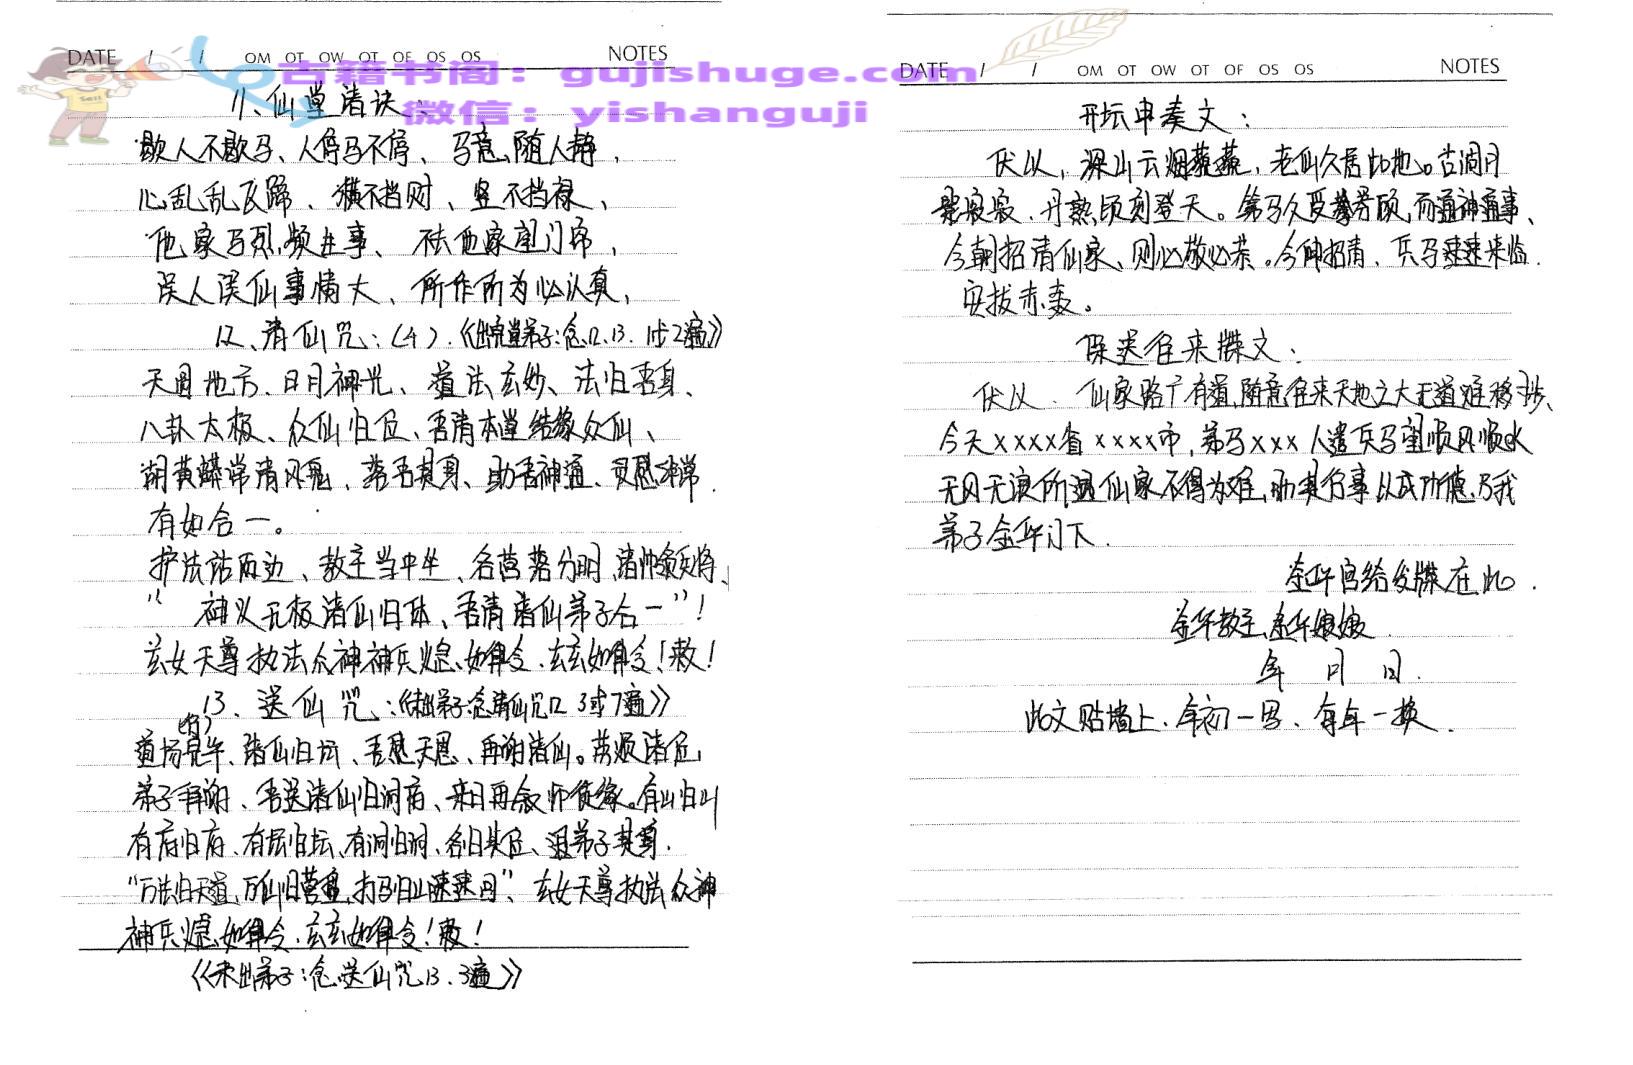 DATE / / OM OT OW OT OF OS OS NOTES
古籍书阁：gujishuge.com
微信：yishanguji
11、仙堂清诀：
歇人不歇马、人停马不停、马意随人静，
心乱乱飞蹄、横不挡财、竖不挡禄、
他家马烈频生事、不去他家望门帘，
误人误仙事情大、所作所为必认真，
12、请仙咒：（4）.《出堂弟子：念12.13. 1或2遍》
天圆地方、日月神光、道法玄妙、法归吾身、
八卦太极、众仙归位、吾请本堂结缘众仙、
胡黄蟒常清风鬼、落吾其身、助吾神通、灵感非常.
有如合一。
护法站两边、教主当中坐、各营落分明、诸帅领兵将、
“ 神义无极诸仙归体、吾请诸仙弟子合一”！
玄女天尊执法众神神兵火急如律令.玄玄如律令！敕！
13、送仙咒：《未出弟子：念请仙咒12 3或7遍》
道场完毕、诸仙归坛、吾感天恩、再谢诸仙。劳烦诸位
弟子再谢、吾送诸仙归洞府、来日再叙师徒缘。有山归山
有府归府、有坛归坛、有洞归洞、各归其位、退弟子其身.
“万法归天道、万仙归营盘、打马归山速速回”、玄女天尊执法众神
神兵火急如律令.玄玄如律令！敕！
《未出弟子：念送仙咒13、3遍》
DATE / / OM OT OW OT OF OS OS NOTES
开坛申奏文：
伏以，深山云烟燕燕，老仙久居此地。古洞月
滚滚、丹熟顷刻登天。弟马久受香顶，而通神通事、
今朝招请仙家、则必敬必恭。今即招请、兵马速速来临.
实拔赤奏。
保送往来牒文：
伏以、仙家路广有道，随意往来天地之大无道难移步、
今天xxxx省xxxx市，弟马xxx人遣兵马望顺风顺水
无风无浪所遇仙家不得为难，助其行事以成功德，乃我
弟子金华门下.
金华宫给发牒在此.
金华教主金华娘娘
年 月 日.
此文贴墙上、年初一写、每年一换.